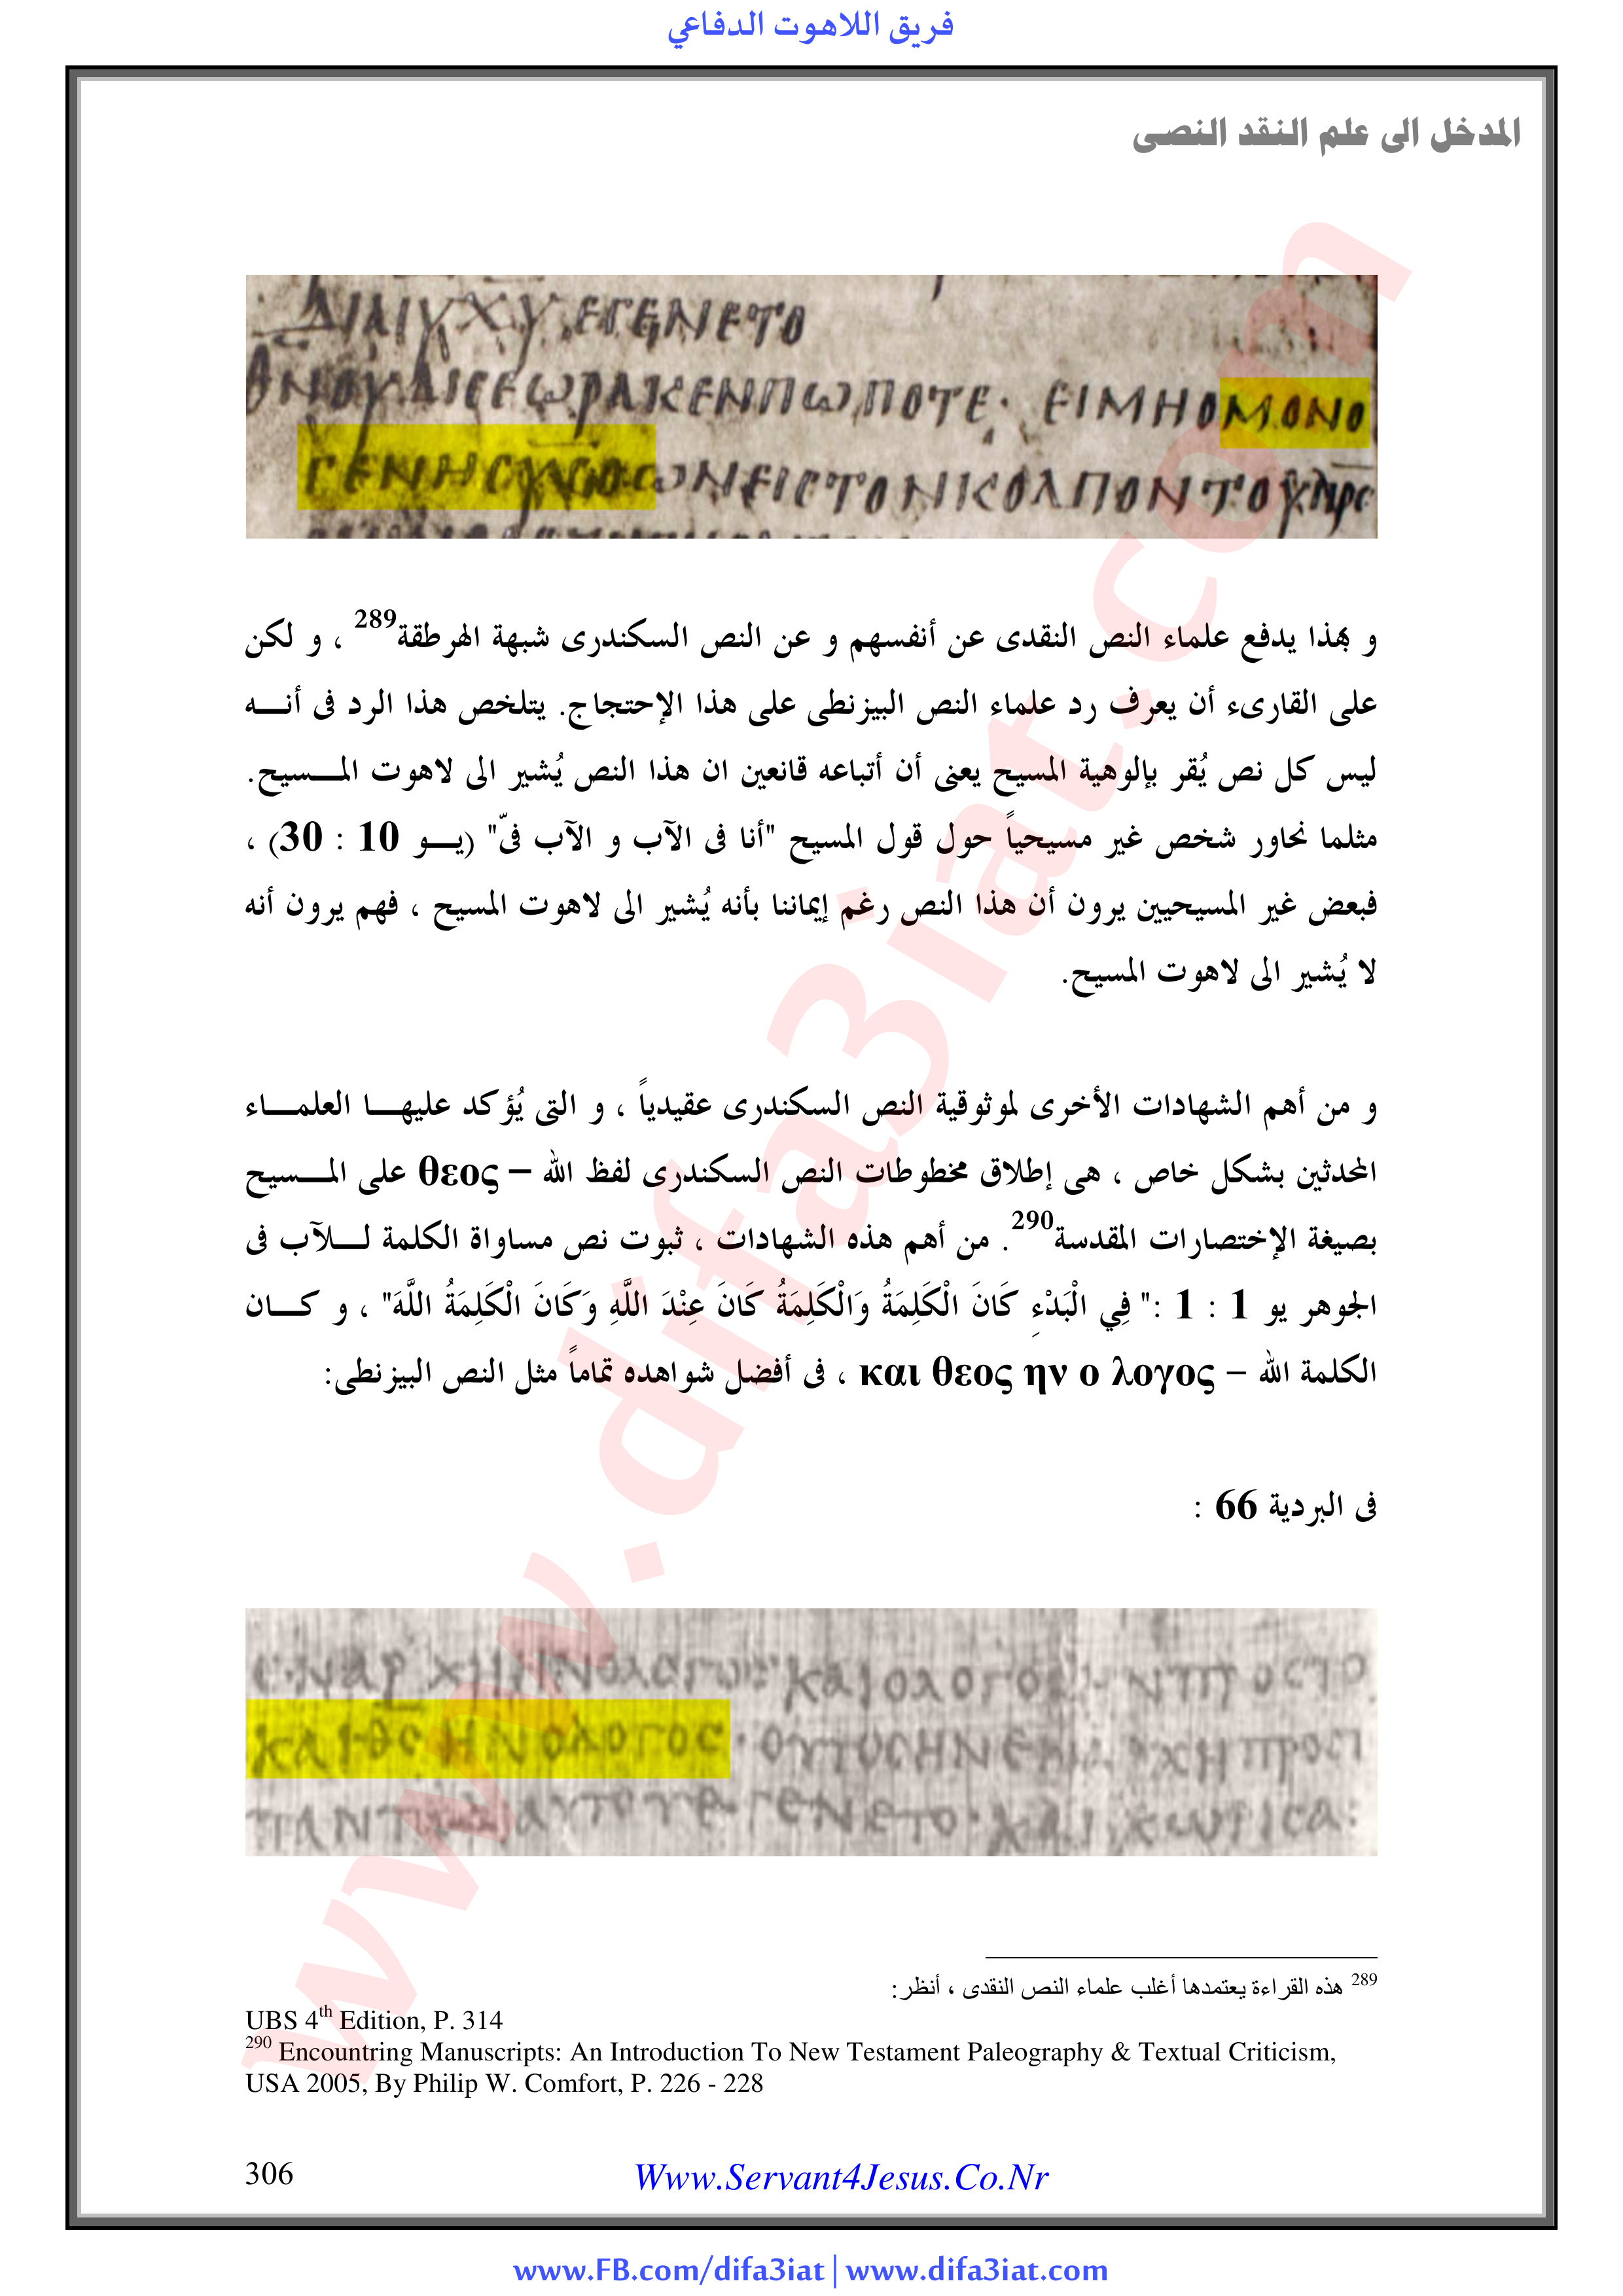 فريق اللاهوت الدفاعي
المدخل الى علم النقد النصى
ΔΙΑΙΥΧΥ ΕΓΕΝΕΤΟ
ΘΝΟΥΔΙCΕΩΡΑΚΕΝΠΩΠΟΤΕ· ΕΙΜΗΟΜΟΝΟ
ΓΕΝΗCΥCΟΩΝΕΙCΤΟΝΚΟΛΠΟΝΤΟΥΠΡC
و بهذا يدفع علماء النص النقدى عن أنفسهم و عن النص السكندرى شبهة الهرطقة289 ، و لكن
على القارىء أن يعرف رد علماء النص البيزنطى على هذا الإحتجاج. يتلخص هذا الرد فى أنـــه
ليس كل نص يُقر بإلوهية المسيح يعنى أن أتباعه قانعين ان هذا النص يُشير الى لاهوت المـــسيح.
مثلما نحاور شخص غير مسيحياً حول قول المسيح "أنا فى الآب و الآب فىّ" (يـــو 10 : 30) ،
فبعض غير المسيحيين يرون أن هذا النص رغم إيماننا بأنه يُشير الى لاهوت المسيح ، فهم يرون أنه
لا يُشير الى لاهوت المسيح.
و من أهم الشهادات الأخرى لموثوقية النص السكندرى عقيدياً ، و التى يُؤكد عليهـــا العلمـــاء
المحدثين بشكل خاص ، هى إطلاق مخطوطات النص السكندرى لفظ الله – θεος على المـــسيح
بصيغة الإختصارات المقدسة290. من أهم هذه الشهادات ، ثبوت نص مساواة الكلمة لـــلآب فى
الجوهر يو 1 : 1 :" فِي الْبَدْءِ كَانَ الْكَلِمَةُ وَالْكَلِمَةُ كَانَ عِنْدَ اللَّهِ وَكَانَ الْكَلِمَةُ اللَّهَ" ، و كـــان
الكلمة الله – και θεος ην ο λογος ، فى أفضل شواهده تماماً مثل النص البيزنطى:
فى البردية 66 :
ΕΝΑΡΧΗΗΝΟΛΟΓΟC ΚΑΙΟΛΟΓΟC ΗΝΠΡΟCΤΟ
ΚΑΙ·ΘC ΗΝΟΛΟΓΟC·ΟΥΤΟCΗΝΕΝΑΡΧΗΠΡΟCΤ
ΠΑΝΤΑΔΙΑΥΤΟΥΕΓΕΝΕΤΟ·ΚΑΙΧΩΡΙCΑ
289 هذه القراءة يعتمدها أغلب علماء النص النقدى ، أنظر:
UBS 4th Edition, P. 314
290 Encountring Manuscripts: An Introduction To New Testament Paleography & Textual Criticism,
USA 2005, By Philip W. Comfort, P. 226 - 228
306
Www.Servant4Jesus.Co.Nr
www.FB.com/difa3iat | www.difa3iat.com
www.difa3iat.com